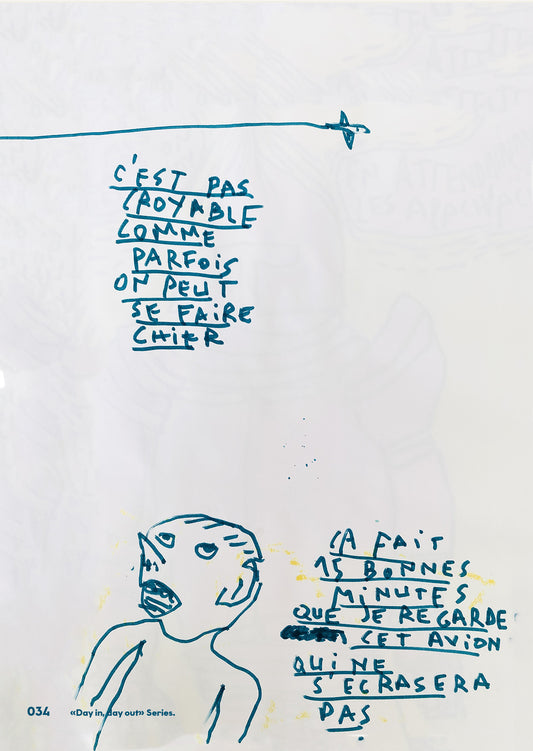 C'EST PAS
CROYABLE
COMME
PARFOIS
ON PEUT
SE FAIRE
CHIER
ÇA FAIT
15 BONNES
MINUTES
QUE JE REGARDE
CET AVION
QUI NE
S'ECRASERA
PAS
034 «Day in, day out» Series.